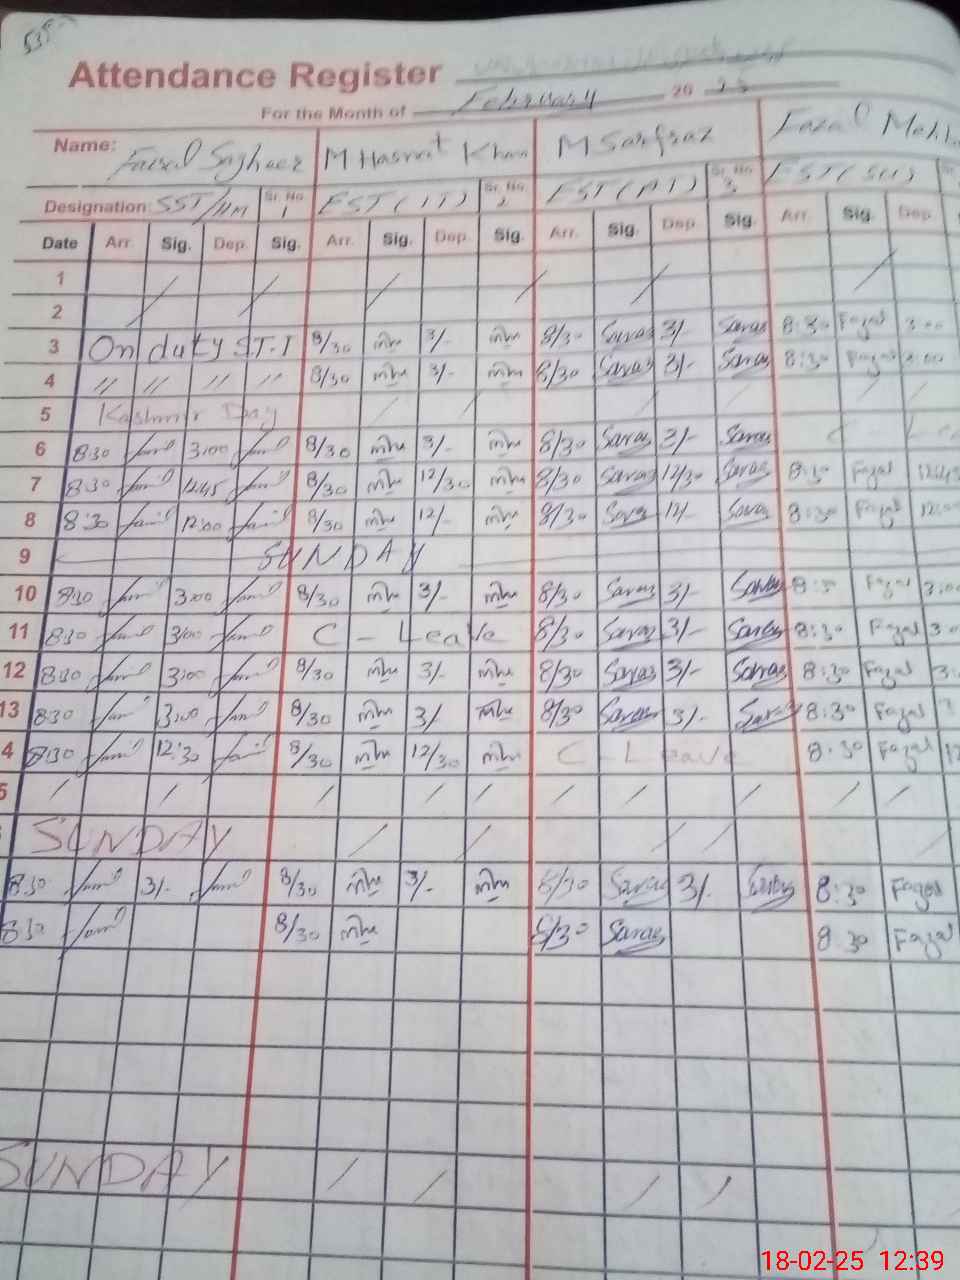 535
Attendance Register
For the Month of February 20 25
Name: Faisal Sagheer M Hasrat Khan M Sarfraz Fazal
Designation: SST/HM Sr. No. 1 EST (IT) Sr. No. 2 EST (AT) Sr. No. 3
Date Arr. Sig. Dep. Sig. Arr. Sig. Dep. Sig. Arr. Sig. Dep. Sig. Arr. Sig. Dep.
1 / / / / / /
2
3 On duty S.T.I 8/30 3/- 8/30 Saraz 3/- Saraz 8:30 Fazal 3:00
4 // // // // 8/30 3/- 8/30 Saraz 3/- Saraz 8:30 Fazal 3:00
5 Kashmir Day / / / / / /
6 8:30 3:00 8/30 3/- 8/30 Saraz 3/- Saraz C - Le
7 8:30 12:45 8/30 12/30 8/30 Saraz 12/30 Saraz 8:30 Fazal 12:45
8 8:30 12:00 8/30 12/- 8/30 Saraz 12/- Saraz 8:30 Fazal 12:00
9 SUNDAY
10 8:30 3:00 8/30 3/- 8/30 Saraz 3/- Saraz 8:30 Fazal 3:00
11 8:30 3:00 C - Leave 8/30 Saraz 3/- Saraz 8:30 Fazal 3:0
12 8:30 3:00 8/30 3/- 8/30 Saraz 3/- Saraz 8:30 Fazal 3:
13 8:30 3:00 8/30 3/- 8/30 Saraz 3/- Saraz 8:30 Fazal 3
4 8:30 12:30 8/30 12/30 C - Leave 8:30 Fazal 12
5 / / / / / / / / / /
SUNDAY / / / / /
8:30 3/- 8/30 3/- 8/30 Saraz 3/- Saraz 8:30 Fazal
8:30 8/30 8/30 Saraz 8:30 Fazal
SUNDAY / / / /
18-02-25 12:39